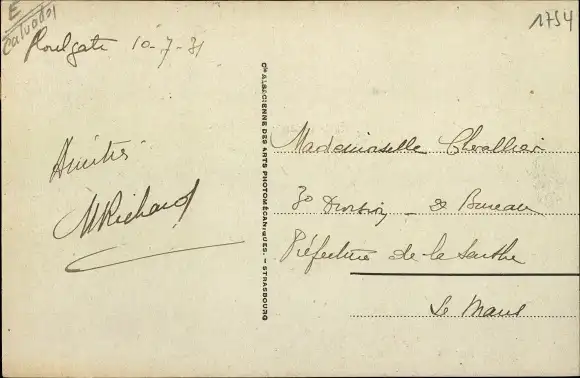 E
Calvados
1754
Houlgate 10-7-31
Amitiés
MRichard
Cie ALSACIENNE DES ARTS PHOTOMÉCANIQUES. - STRASBOURG
Mademoiselle Chevallier
3e Division - 2e Bureau
Préfecture de la Sarthe
Le Mans